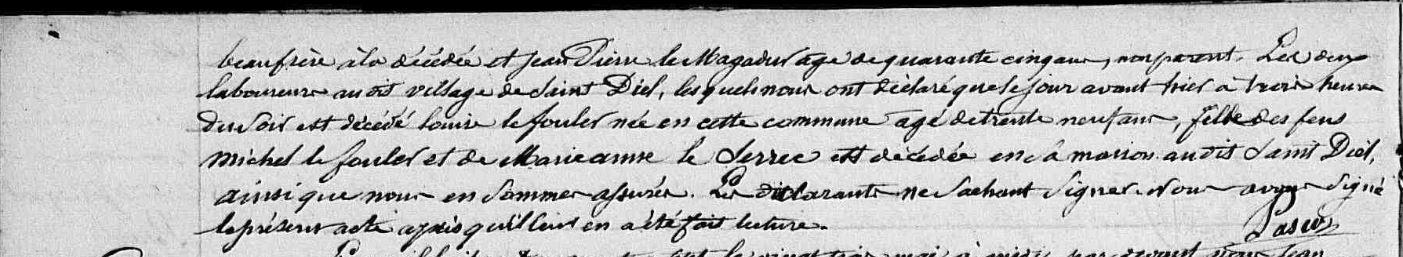 beaufrère à la décédée et Jean Pierre le Magadur âge de quarante cinq ans, non parent. Les deux
laboureurs au dit village de Saint Diel, lesquels nous ont déclaré que le jour avant hier à trois heures
du soir est décédé louise le fouler née en cette commune agé de trente neuf ans, fille des feus
Michel le fouler et de Marie anne le Serrec est décédée en sa maison au dit Saint Diel,
ainsi que nous en sommes assurés. Les déclarants ne sachant signer. Nous avons signé
le présent acte après qu'il leur en a été fait lecture.
Pasco